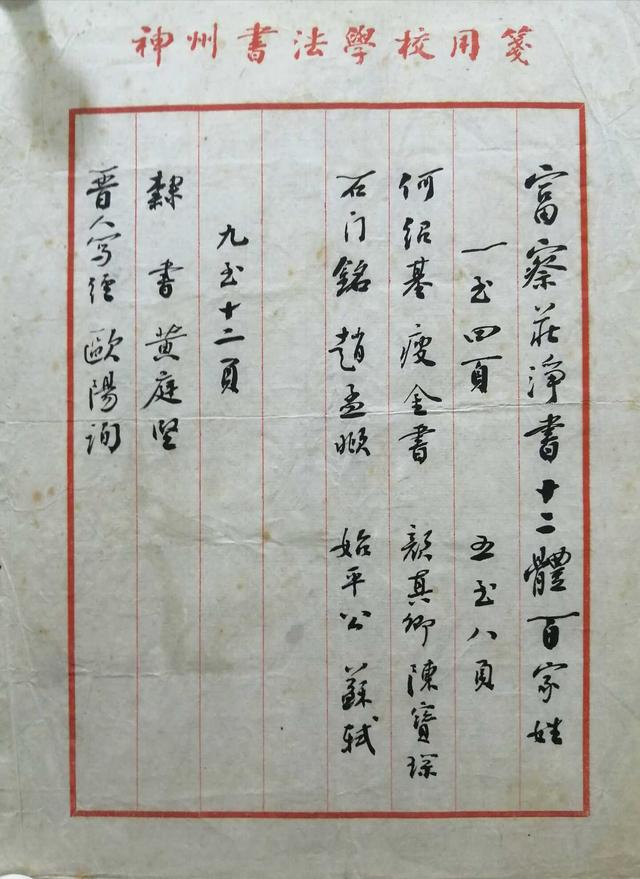 神州書法學校用箋
富察莊淨書十二體百家姓
一至四頁 五至八頁
何紹基 瘦金書 顏真卿 陳寶琛
石门銘 趙孟頫 始平公 蘇軾
九至十二頁
隸書 黄庭坚
晋人写經 歐陽询